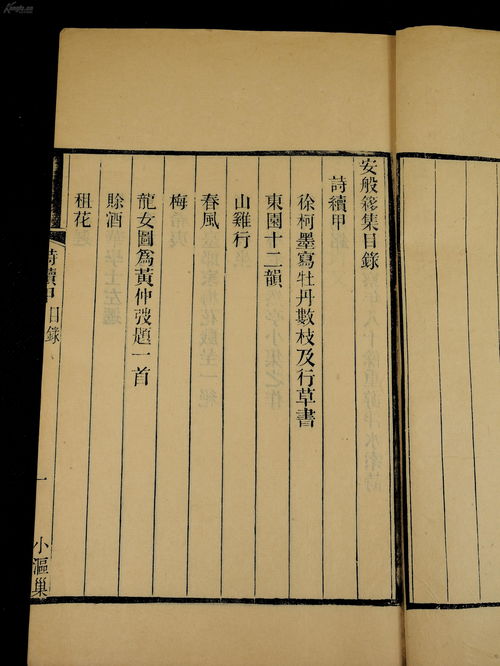 安般簃集目錄
詩續甲
徐柯墨寫牡丹數枝及行草書
東園十二韻
山雞行
春風
梅
龍女圖爲黃仲弢題一首
賒酒
租花
詩續甲 目錄
一
小漚巢